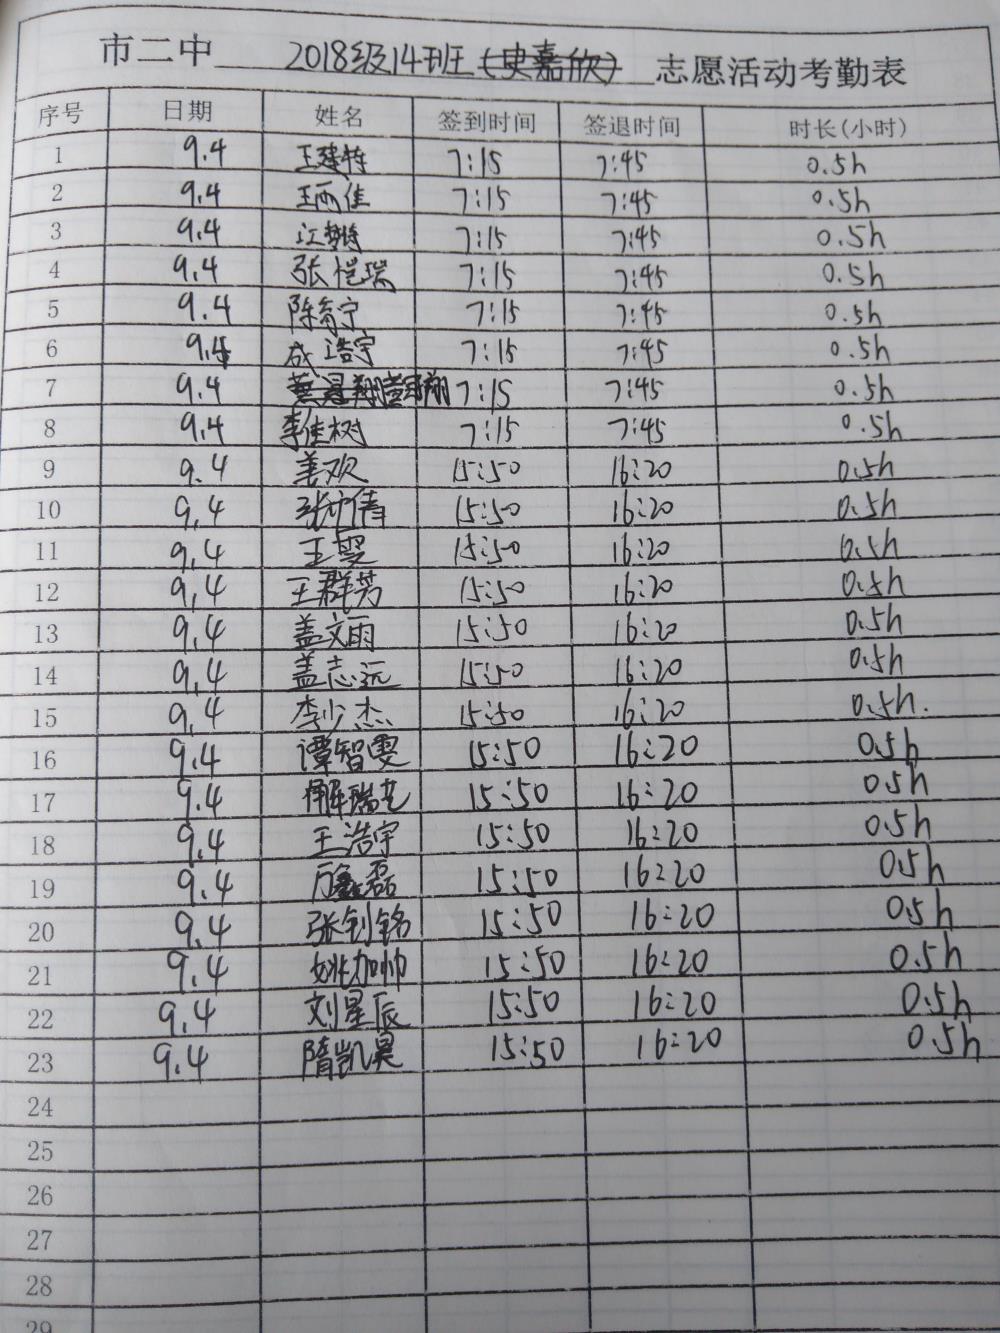 市二中 2018级14班(史嘉欣) 志愿活动考勤表
序号 日期 姓名 签到时间 签退时间 时长(小时)
1 9.4 王建特 7:15 7:45 0.5h
2 9.4 王雨佳 7:15 7:45 0.5h
3 9.4 江梦 7:15 7:45 0.5h
4 9.4 张恺瑞 7:15 7:45 0.5h
5 9.4 陈奇宁 7:15 7:45 0.5h
6 9.4 成浩宇 7:15 7:45 0.5h
7 9.4 7:15 7:45 0.5h
8 9.4 李佳树 7:15 7:45 0.5h
9 9.4 姜欢 15:50 16:20 0.5h
10 9.4 张倩 15:50 16:20 0.5h
11 9.4 王雯 15:50 16:20 0.5h
12 9.4 王群芳 15:50 16:20 0.5h
13 9.4 盖文雨 15:50 16:20 0.5h
14 9.4 盖志远 15:50 16:20 0.5h
15 9.4 李少杰 15:50 16:20 0.5h.
16 9.4 谭智雯 15:50 16:20 0.5h
17 9.4 解瑞 15:50 16:20 0.5h
18 9.4 王浩宇 15:50 16:20 0.5h
19 9.4 磊 15:50 16:20 0.5h
20 9.4 张钊铭 15:50 16:20 0.5h
21 9.4 姚加帅 15:50 16:20 0.5h
22 9.4 刘星辰 15:50 16:20 0.5h
23 9.4 隋凯昊 15:50 16:20 0.5h
24
25
26
27
28
29